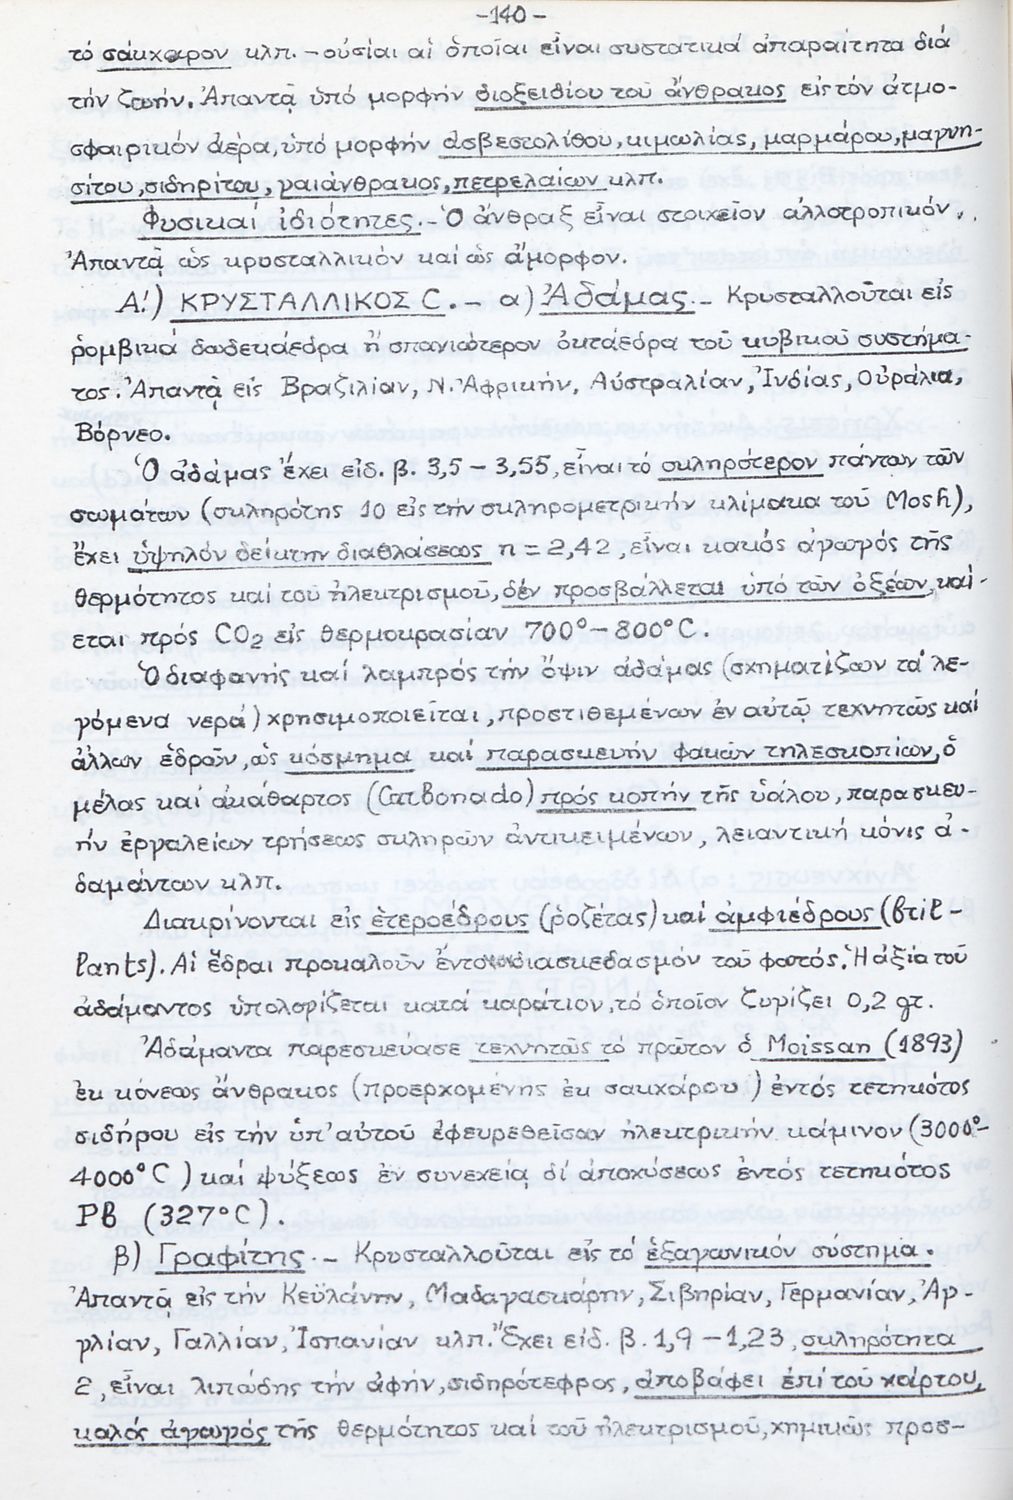 -140-
τό σάκχαρον κλπ. – οὐσίαι αἱ ὁποῖαι εἶναι συστατικά ἀπαραίτητα διά
τήν ζωήν. Ἀπαντᾷ ὑπό μορφήν διοξειδίου τοῦ ἄνθρακος εἰς τόν ἀτμο-
σφαιρικόν ἀέρα, ὑπό μορφήν ἀσβεστολίθου, κιμωλίας, μαρμάρου, μαγνη-
σίτου, σιδηρίτου, γαιάνθρακος, πετρελαίων κλπ.
Φυσικαί ἰδιότητες. – Ὁ ἄνθραξ εἶναι στοιχεῖον ἀλλοτροπικόν.
Ἀπαντᾷ ὡς κρυσταλλικόν καί ὡς ἄμορφον.
Α!) ΚΡΥΣΤΑΛΛΙΚΟΣ C. – α) Ἀδάμας. – Κρυσταλλοῦται εἰς
ρομβικά δωδεκάεδρα ἤ σπανιώτερον ὀκτάεδρα τοῦ κυβικοῦ συστήμα-
τος. Ἀπαντᾷ εἰς Βραζιλίαν, Ν. Ἀφρικήν, Αὐστραλίαν, Ἰνδίας, Οὐράλια,
Βόρνεο.
Ὁ ἀδάμας ἔχει εἰδ. β. 3,5 – 3,55, εἶναι τό σκληρότερον πάντων τῶν
σωμάτων (σκληρότης 10 εἰς τήν σκληρομετρικήν κλίμακα τοῦ Mosh),
ἔχει ὑψηλόν δείκτην διαθλάσεως n = 2,42, εἶναι κακός ἀγωγός τῆς
θερμότητος καί τοῦ ἠλεκτρισμοῦ, δέν προσβάλλεται ὑπό τῶν ὀξέων, καί-
εται πρός CO2 εἰς θερμοκρασίαν 700° – 800°C.
Ὁ διαφανής καί λαμπρός τήν ὄψιν ἀδάμας (σχηματίζων τά λε-
γόμενα νερά) χρησιμοποιεῖται, προστιθεμένων ἐν αὐτῷ τεχνητῶς καί
ἄλλων ἑδρῶν, ὡς κόσμημα καί παρασκευήν φακῶν τηλεσκοπίων, ὁ
μέλας καί ἀκάθαρτος (Carbonado) πρός κοπήν τῆς ὑάλου, παρασκευ-
ήν ἐργαλείων τρήσεως σκληρῶν ἀντικειμένων, λειαντική κόνις ἀ-
δαμάντων κλπ.
Διακρίνονται εἰς ἑτεροέδρους (ροζέτας) καί ἀμφιέδρους (bril-
lants). Αἱ ἕδραι προκαλοῦν ἔντονο διασκεδασμόν τοῦ φωτός. Ἡ ἀξία τοῦ
ἀδάμαντος ὑπολογίζεται κατά καράτιον, τό ὁποῖον ζυγίζει 0,2 gr.
Ἀδάμαντα παρεσκεύασε τεχνητῶς τό πρῶτον ὁ Moissan (1893)
ἐκ κόνεως ἄνθρακος (προερχομένης ἐκ σακχάρου) ἐντός τετηκότος
σιδήρου εἰς τήν ὑπ' αὐτοῦ ἐφευρεθεῖσαν ἠλεκτρικήν κάμινον (3000°-
4000°C) καί ψύξεως ἐν συνεχείᾳ δι' ἀποχύσεως ἐντός τετηκότος
Pb (327°C).
β) Γραφίτης. – Κρυσταλλοῦται εἰς τό ἑξαγωνικόν σύστημα.
Ἀπαντᾷ εἰς τήν Κεϋλάνην, Μαδαγασκάρην, Σιβηρίαν, Γερμανίαν, Ἀγ-
γλίαν, Γαλλίαν, Ἰσπανίαν κλπ. Ἔχει εἰδ. β. 1,9 – 1,23, σκληρότητα
2, εἶναι λιπώδης τήν ἀφήν, σιδηρότεφρος, ἀποβάφει ἐπί τοῦ χάρτου,
καλός ἀγωγός τῆς θερμότητος καί τοῦ ἠλεκτρισμοῦ, χημικῶς προσ-